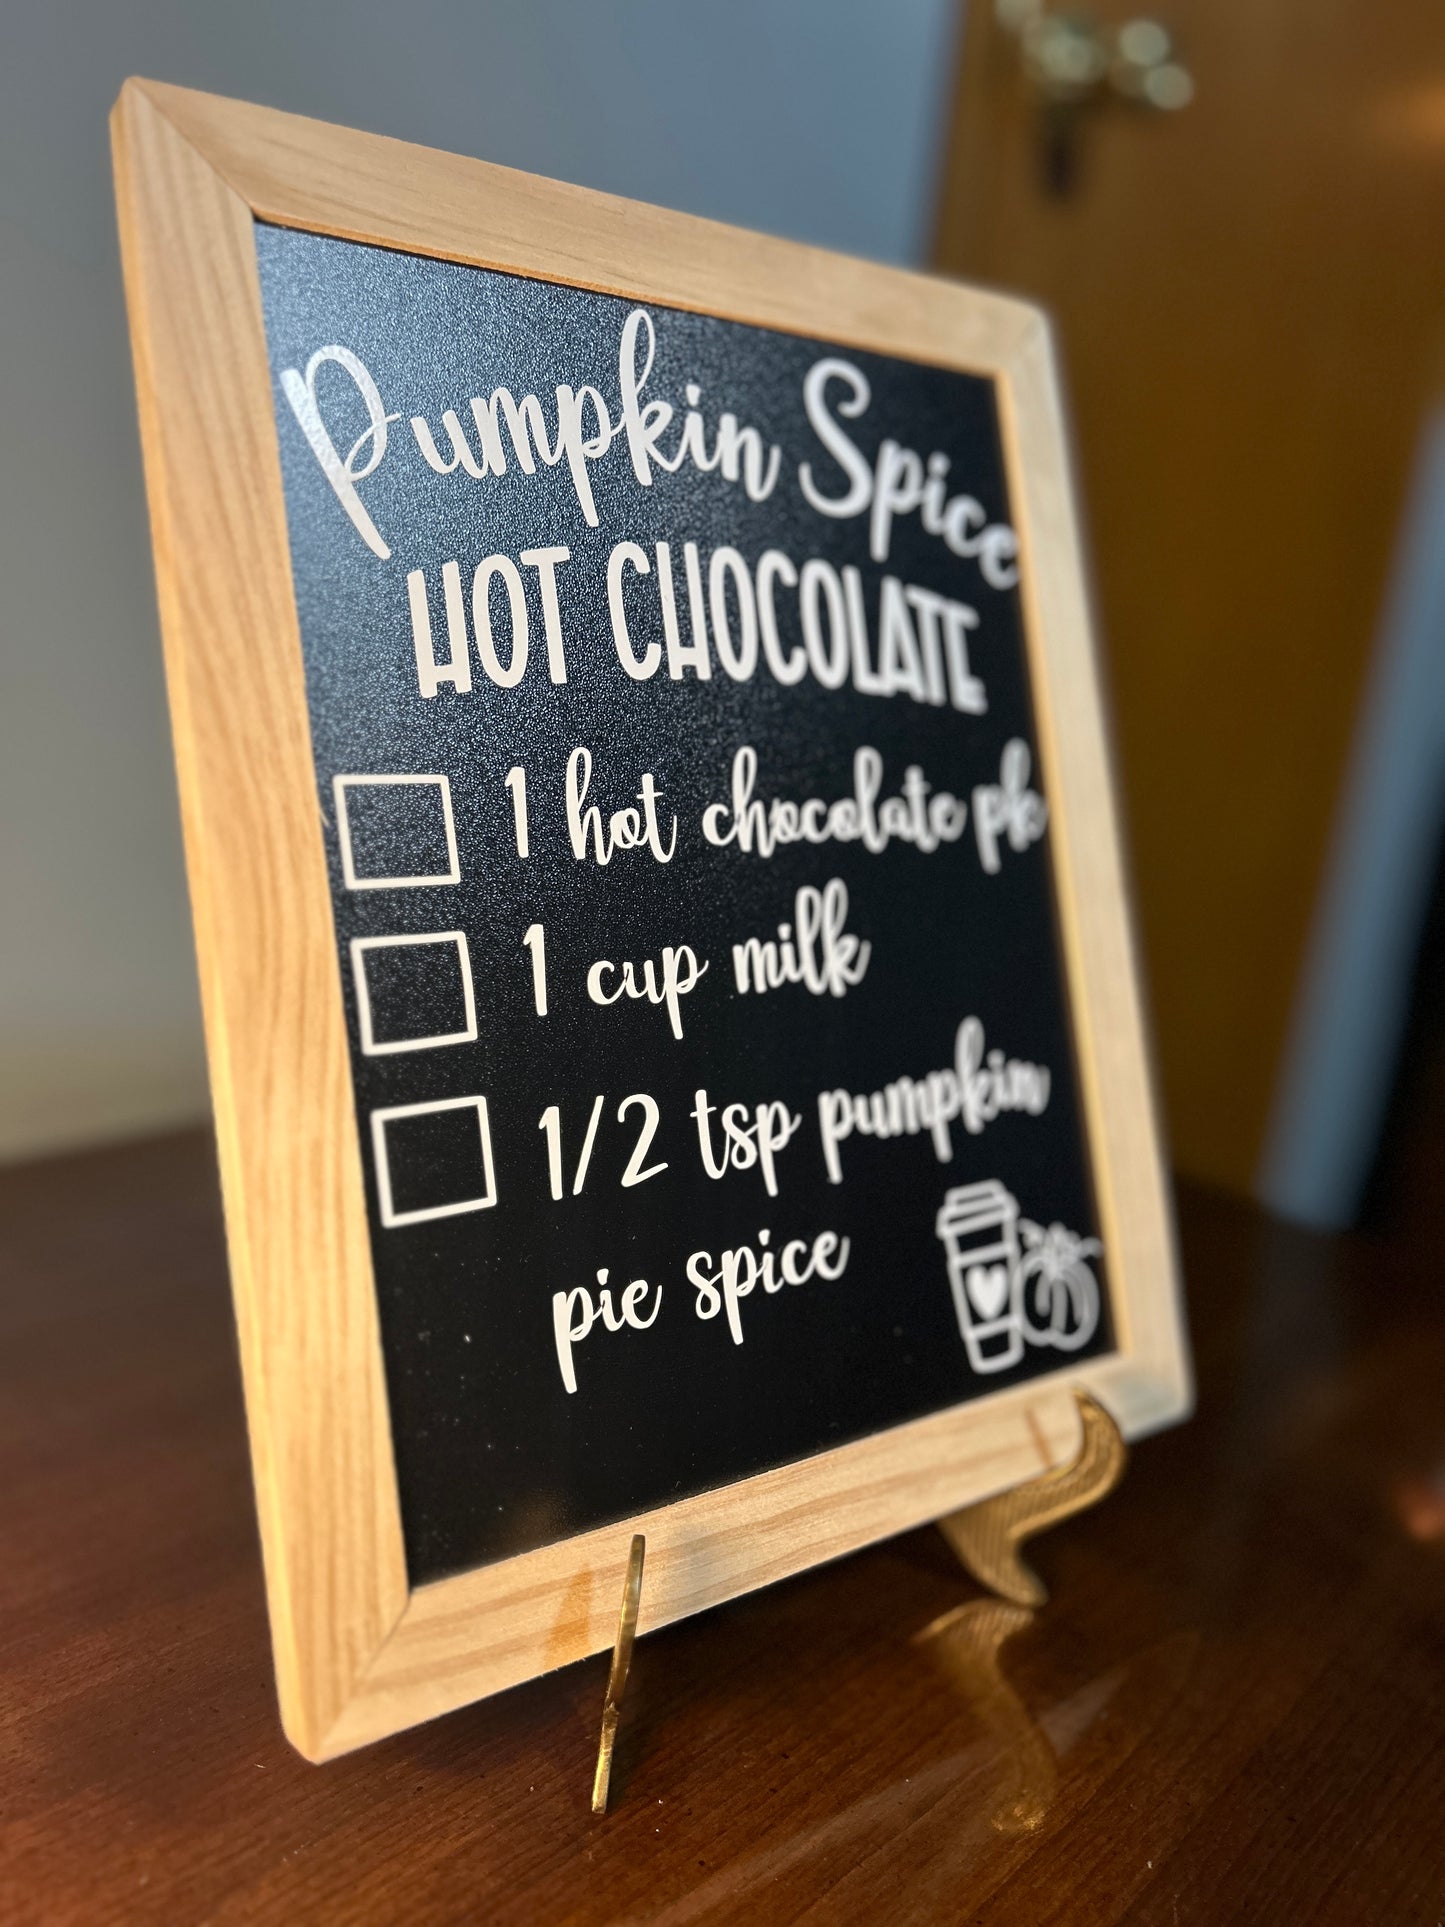 Pumpkin Spice
HOT CHOCOLATE
1 hot chocolate pk
1 cup milk
1/2 tsp pumpkin
pie spice